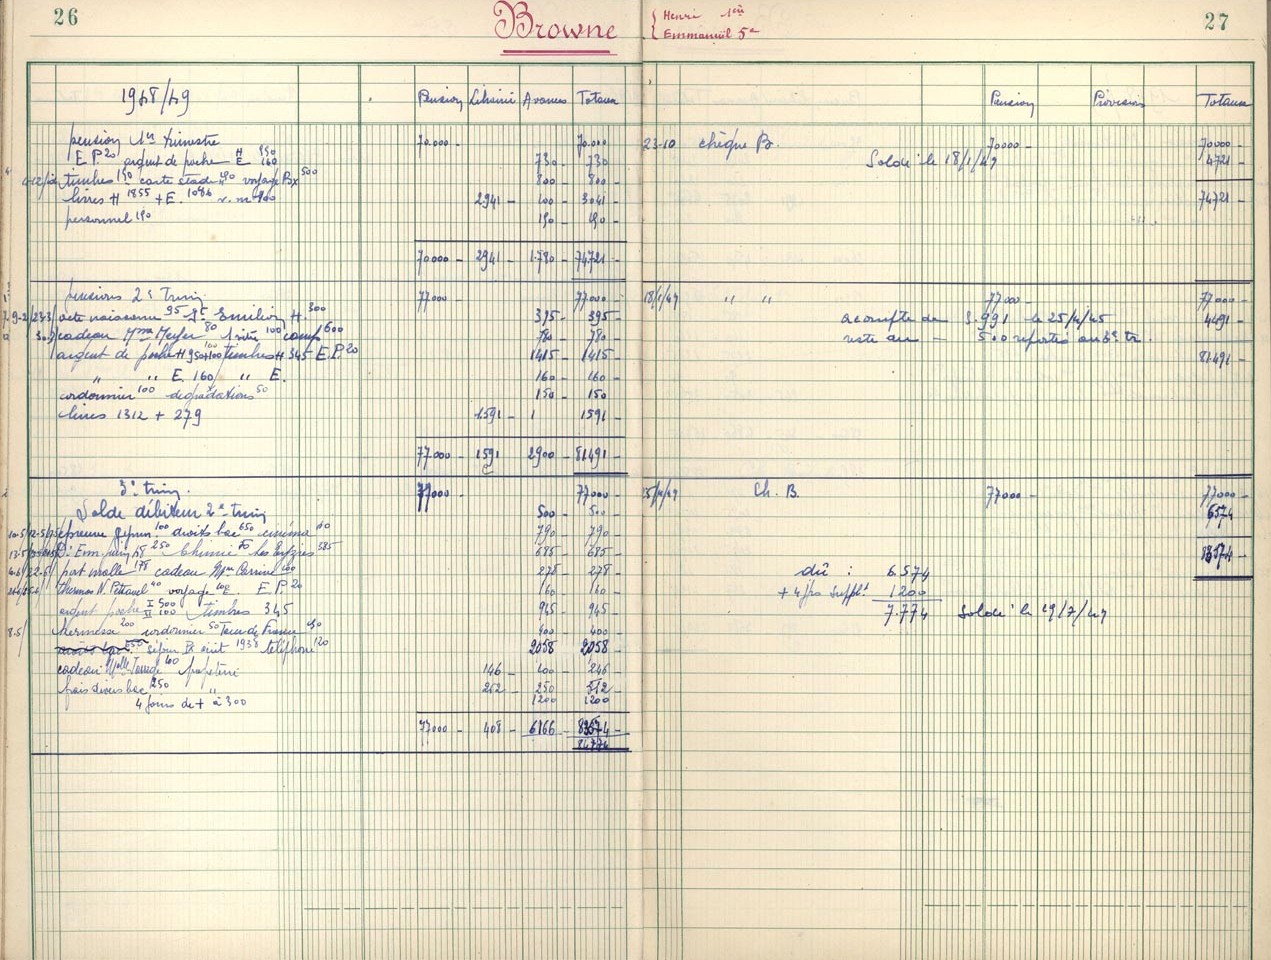 26
Browne
Henri 1ère
Emmanuël 5e
27
1948/49
Pension Librairie Avances Totaux
Pension Provision Totaux
pension 1er trimestre 70.000 - 70.000 -
E.P. 20 argent de poche H 550 E 160 730 - 730 -
timbres 150 carte stade 150 voyage Bx 500 800 - 800 -
livres H 1855 + E. 1086 2941 - 100 - 3041 -
personnel 190 190 - 190 -
70000 - 2941 - 1.780 - 74.721 -
23-10 chèque B. 70000 - 70000 -
Soldé le 18/1/49 4721 -
74721 -
pensions 2e trim. 77000 - 77000 -
acte naissance 95 H. 300 395 - 395 -
cadeau Mme Meyer 80 100 camp 600 780 - 780 -
argent de poche H 950+100 timbres H 345 E.P. 20 1415 - 1415 -
" " E. 160 / " E. 160 - 160 -
cordonnier 100 dégradations 50 150 - 150 -
livres 1312 + 279 1591 - 1591 -
77000 - 1591 - 2900 - 81491 -
18/1/49 " " 77000 - 77000 -
acompte de 3.991 le 25/4/45 4491 -
reste du - 500 reportés au 3e tr.
81.491 -
3e trim. 77000 - 77000 -
Solde débiteur 2e trim 500 - 500 -
100 droits bac 650 cinéma 40 790 - 790 -
250 Chimie 50 les Eyzies 585 685 - 685 -
port malle 178 cadeau Mme 100 278 - 278 -
thermos N. 40 voyage E. P. 20 160 - 160 -
argent poche I 500 II 100 timbres 345 945 - 945 -
8.5/ Kermesse 200 cordonnier 50 Tour de France 150 400 - 400 -
séjour Bx août 1938 téléphone 120 2058 - 2058 -
cadeau Melle 100 papeterie 146 - 100 - 246 -
frais divers bac 250 " 262 - 250 - 512 -
4 jours de + à 300 1200 1200
77000 - 408 - 6166 - 83574 -
84774
Ch. B. 77000 - 77000 -
6574
83574 -
dû : 6.574
+ 4 jrs suppl. 1200
7.774 Soldé le 19/7/49